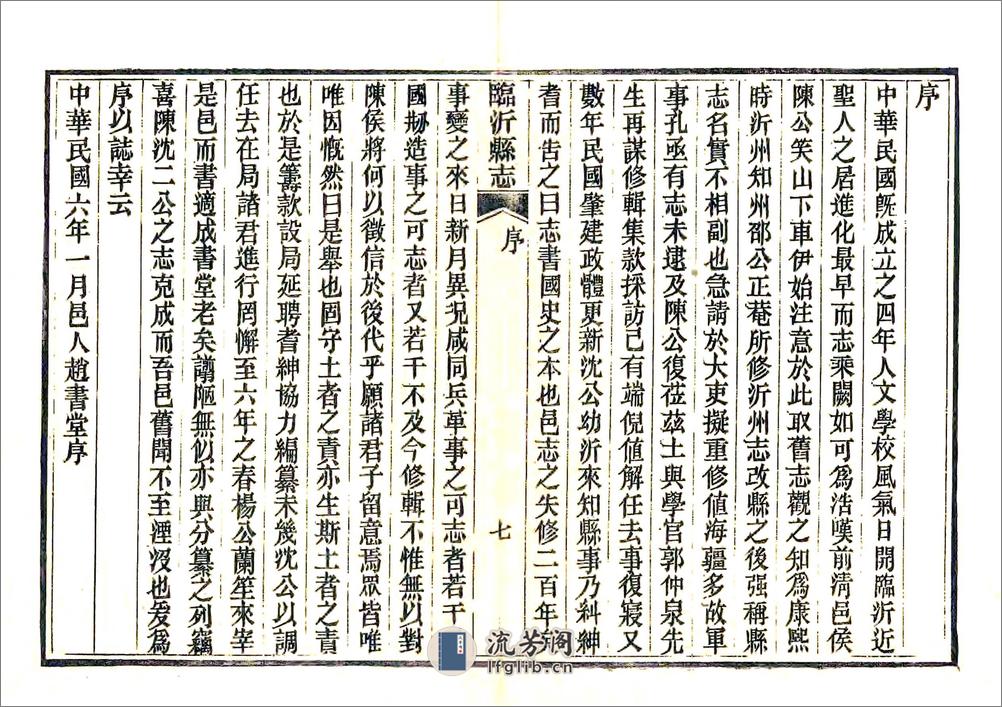 序
中華民國旣成立之四年人文學校風氣日開臨沂近
聖人之居進化最早而志乘闕如可爲浩嘆前淸邑侯
陳公笑山下車伊始注意於此取舊志觀之知爲康熙
時沂州知州邵公正菴所修沂州志改縣之後强稱縣
志名實不相副也急請於大吏擬重修値海疆多故軍
事孔亟有志未逮及陳公復莅茲土與學官郭仲泉先
生再謀修輯集款採訪已有端倪値解任去事復寢又
數年民國肇建政體更新沈公幼沂來知縣事乃糾紳
耆而告之曰志書國史之本也邑志之失修二百年
臨沂縣志
序
七
事變之來日新月異況咸同兵革事之可志者若干
國刱造事之可志者又若干不及今修輯不惟無以對
陳侯將何以徵信於後代乎願諸君子留意焉眾皆唯
唯因慨然曰是舉也固守土者之責亦生斯土者之責
也於是籌款設局延聘耆紳協力編纂未幾沈公以調
任去在局諸君進行罔懈至六年之春楊公蘭笙來宰
是邑而書適成書堂老矣譾陋無似亦與分纂之列竊
喜陳沈二公之志克成而吾邑舊聞不至湮沒也爰爲
序以誌幸云
中華民國六年一月邑人趙書堂序
流芳閣
lfglib.cn